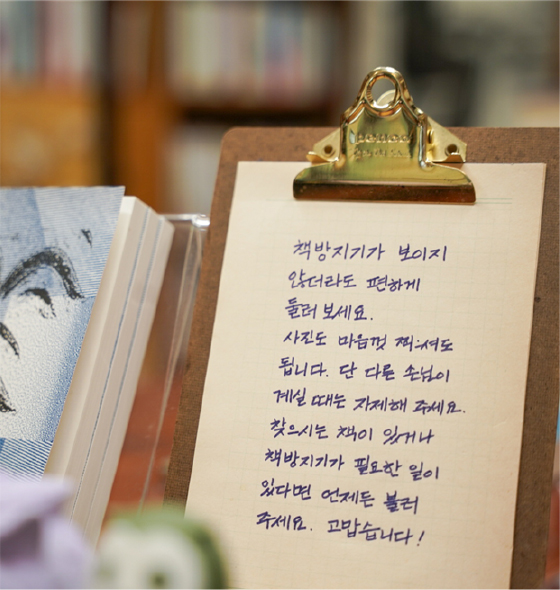 책방지기가 보이지
않더라도 편하게
둘러 보세요.
사진도 마음껏 찍으셔도
됩니다. 단 다른 손님이
계실 때는 자제해 주세요.
찾으시는 책이 있거나
책방지기가 필요한 일이
있다면 언제든 불러
주세요. 고맙습니다!